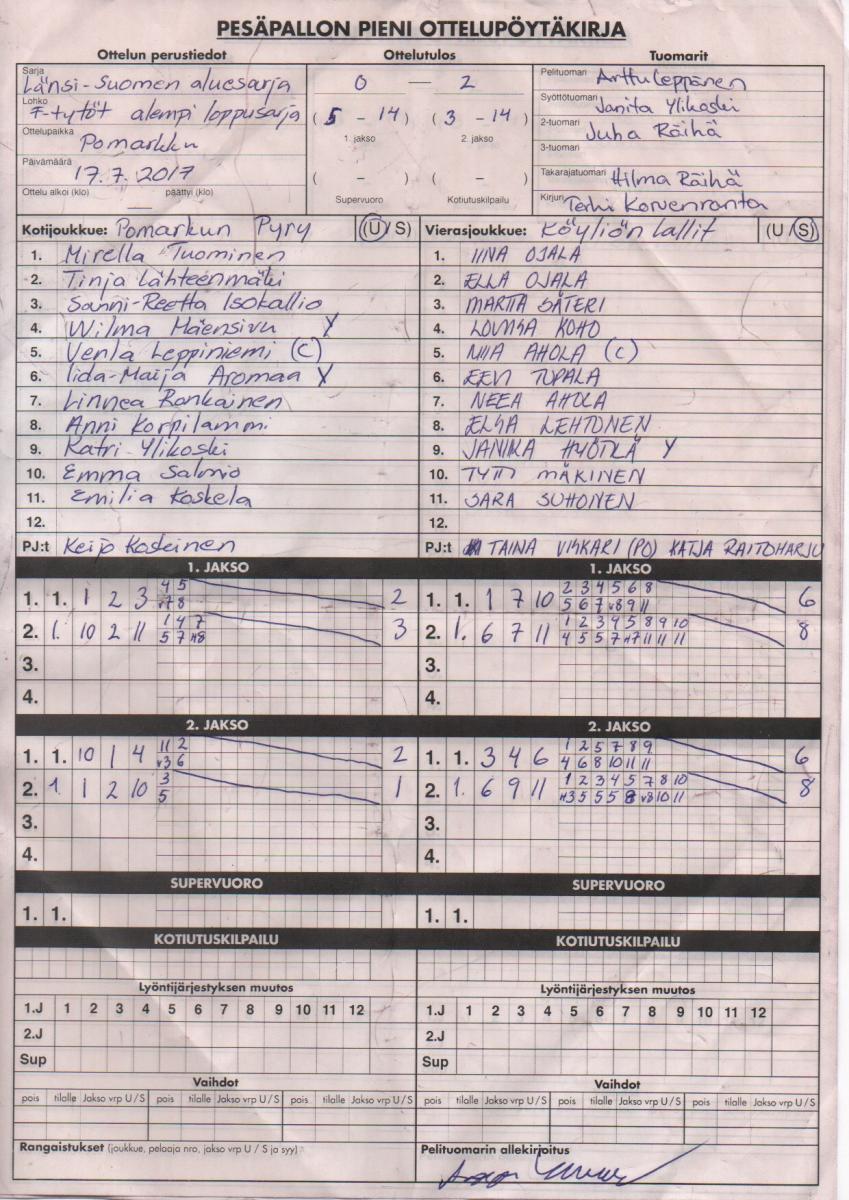 PESÄPALLON PIENI OTTELUPÖYTÄKIRJA
Ottelun perustiedot
Sarja
Länsi-Suomen aluesarja
Lohko
F-tytöt alempi loppusarja
Ottelupaikka
Pomarkku
Päivämäärä
17.7.2017
Ottelu alkoi (klo) — päättyi (klo)
Ottelutulos
0 — 2
(5 - 14) (3 - 14)
1. jakso 2. jakso
( - ) ( - )
Supervuoro Kotiutuskilpailu
Tuomarit
Pelituomari Arttu Leppänen
Syöttötuomari Janita Ylikoski
2-tuomari Juha Räihä
3-tuomari
Takarajatuomari Hilma Räihä
Kirjuri Terhi Korvenranta
Kotijoukkue: Pomarkun Pyry (U / S)
1. Mirella Tuominen
2. Tinja Lähteenmäki
3. Sanni-Reetta Isokallio
4. Wilma Mäensivu Y
5. Venla Leppiniemi (C)
6. Iida-Maija Aromaa Y
7. Linnea Ronkainen
8. Anni Korpilammi
9. Katri Ylikoski
10. Emma Salmio
11. Emilia Koskela
12.
PJ:t Keijo Koskinen
Vierasjoukkue: Köyliön Lallit (U / S)
1. IINA OJALA
2. ELLA OJALA
3. MARTTA SÄTERI
4. LOVIISA KOHO
5. NIIA AHOLA (C)
6. EEVI TUPALA
7. NEEA AHOLA
8. ELSA LEHTONEN
9. JANIKA HYÖTILÄ Y
10. TYTTI MÄKINEN
11. SARA SUHONEN
12.
PJ:t TAINA VISKARI (PO) KATJA RAITOHARJU
1. JAKSO
1. 1. 1 2 3 4 5 2
v7 8
2. 1. 10 2 11 1 4 7 3
5 7 H8
3.
4.
1. JAKSO
1. 1. 1 7 10 2 3 4 5 6 8 6
5 6 7 v8 9 11
2. 1. 6 7 11 1 2 3 4 5 8 9 10 8
4 5 5 7 H7 11 11 11
3.
4.
2. JAKSO
1. 1. 10 1 4 11 2 2
v3 6
2. 1. 1 2 10 3 1
5
3.
4.
2. JAKSO
1. 1. 3 4 6 1 2 5 7 8 9 6
4 6 8 10 11 11
2. 1. 6 9 11 1 2 3 4 5 7 8 10 8
H3 5 5 5 8 v8 10 11
3.
4.
SUPERVUORO
1. 1.
SUPERVUORO
1. 1.
KOTIUTUSKILPAILU
KOTIUTUSKILPAILU
Lyöntijärjestyksen muutos
1.J 1 2 3 4 5 6 7 8 9 10 11 12
2.J
Sup
Lyöntijärjestyksen muutos
1.J 1 2 3 4 5 6 7 8 9 10 11 12
2.J
Sup
Vaihdot
pois tilalle Jakso vrp U / S pois tilalle Jakso vrp U / S pois tilalle Jakso vrp U / S
Vaihdot
pois tilalle Jakso vrp U / S pois tilalle Jakso vrp U / S pois tilalle Jakso vrp U / S
Rangaistukset (joukkue, pelaaja nro, jakso vrp U / S ja syy)
Pelituomarin allekirjoitus